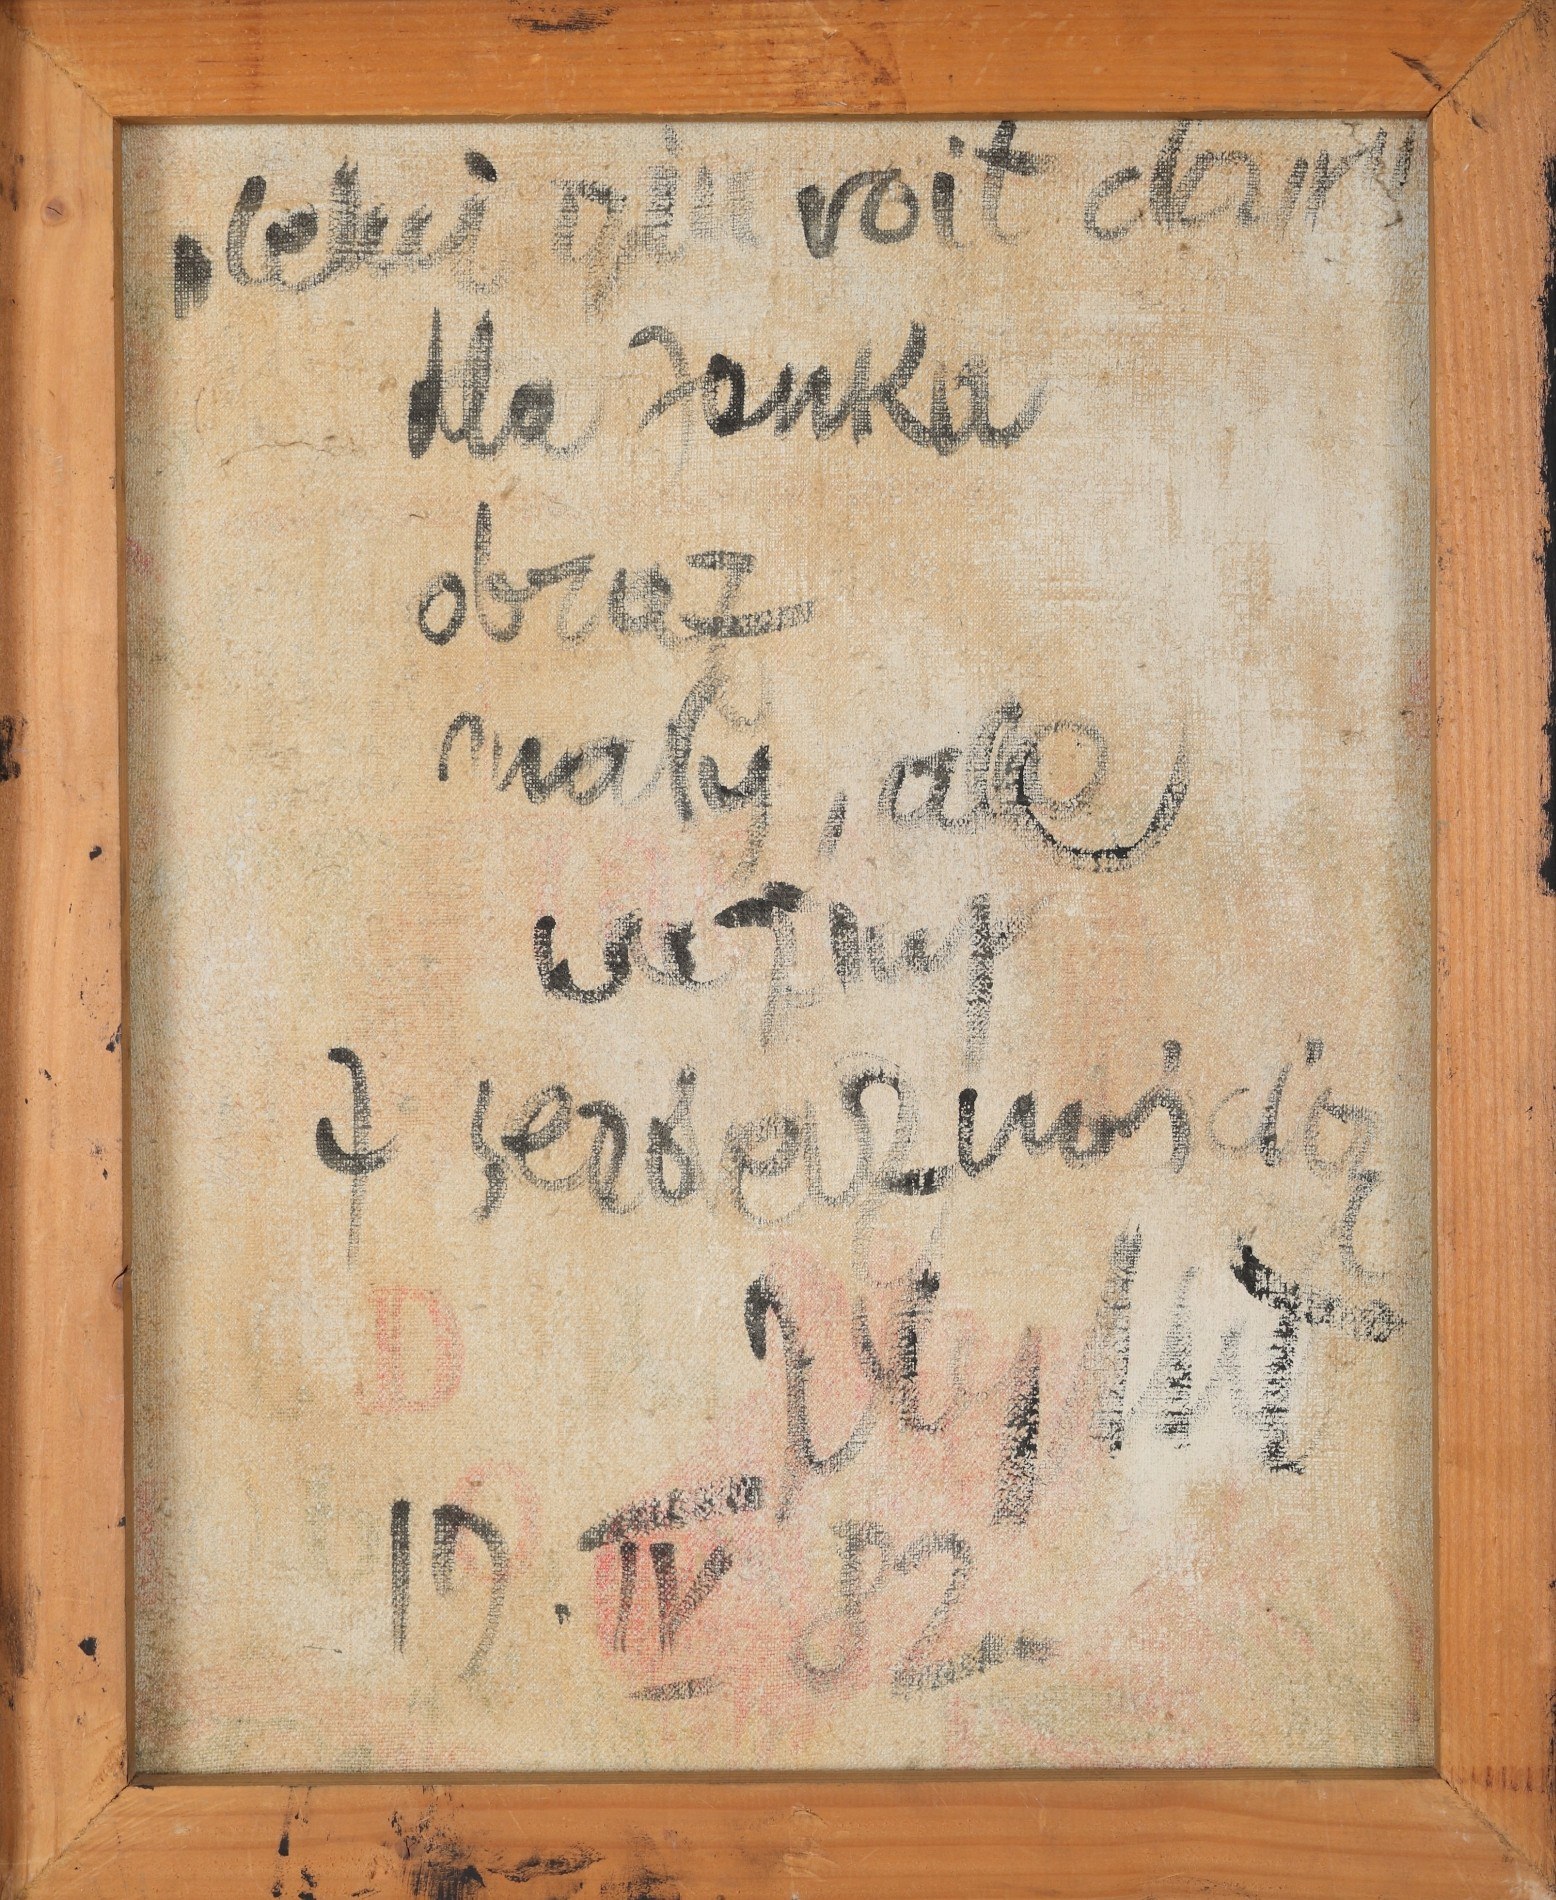 „Celui qui voit clair"
dla Janka
obraz
mały, ale
ważny
z serdecznością
17. IV 82